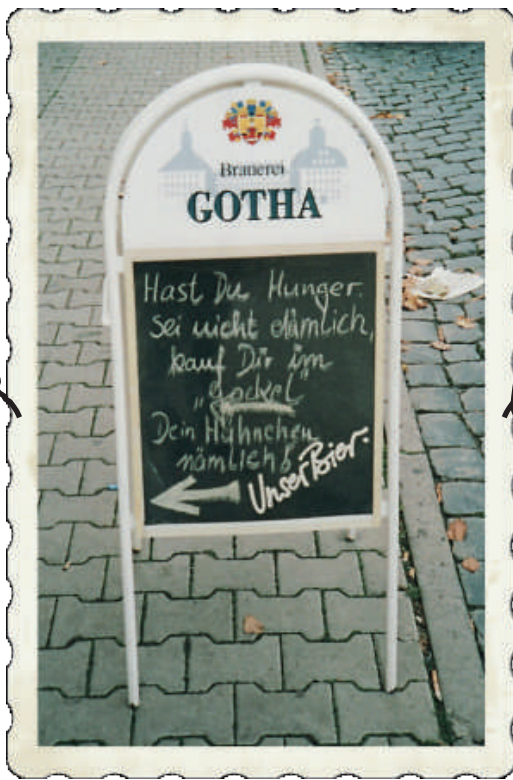 Brauerei
GOTHA
Hast Du Hunger.
Sei nicht dämlich,
kauf Dir im
„Gockel"
Dein Hühnchen
nämlich!
Unser Bier.